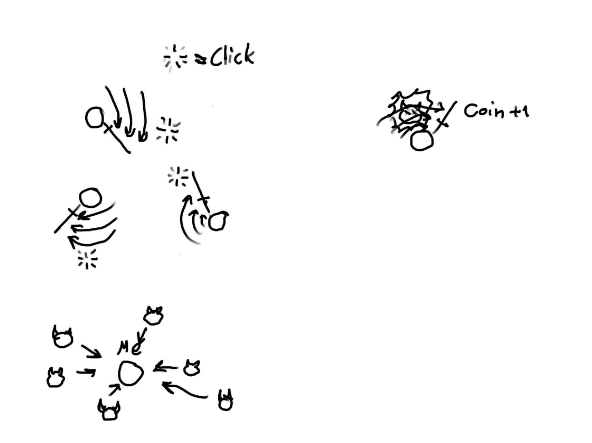 = Click
Coin +1
Me